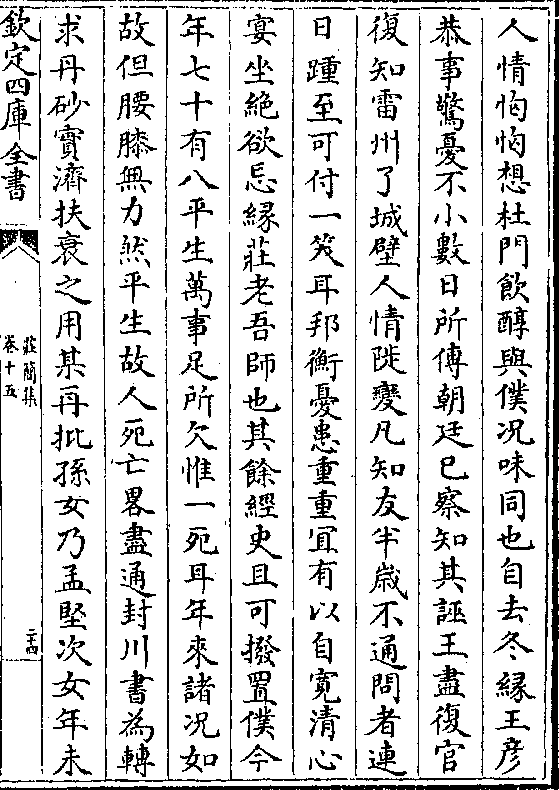 人情恟恟想杜門飲醇與僕况味同也自去冬縁王彦
恭事驚憂不小數日所傳朝廷已察知其誣王盡復官
復知雷州了城壁人情陡變凡知友半嵗不通問者連
日踵至可付一笑耳邦衡憂患重重宜有以自寛清心
宴坐絶欲忘縁莊老吾師也其餘經史且可撥置僕今
年七十有八平生萬事足所欠惟一死耳年來諸况如
故但腰膝無力然平生故人死亡畧盡通封川書為轉
求丹砂實濟扶衰之用某再批孫女乃孟堅次女年未
欽定四庫全書
莊簡集
卷十五
二十四